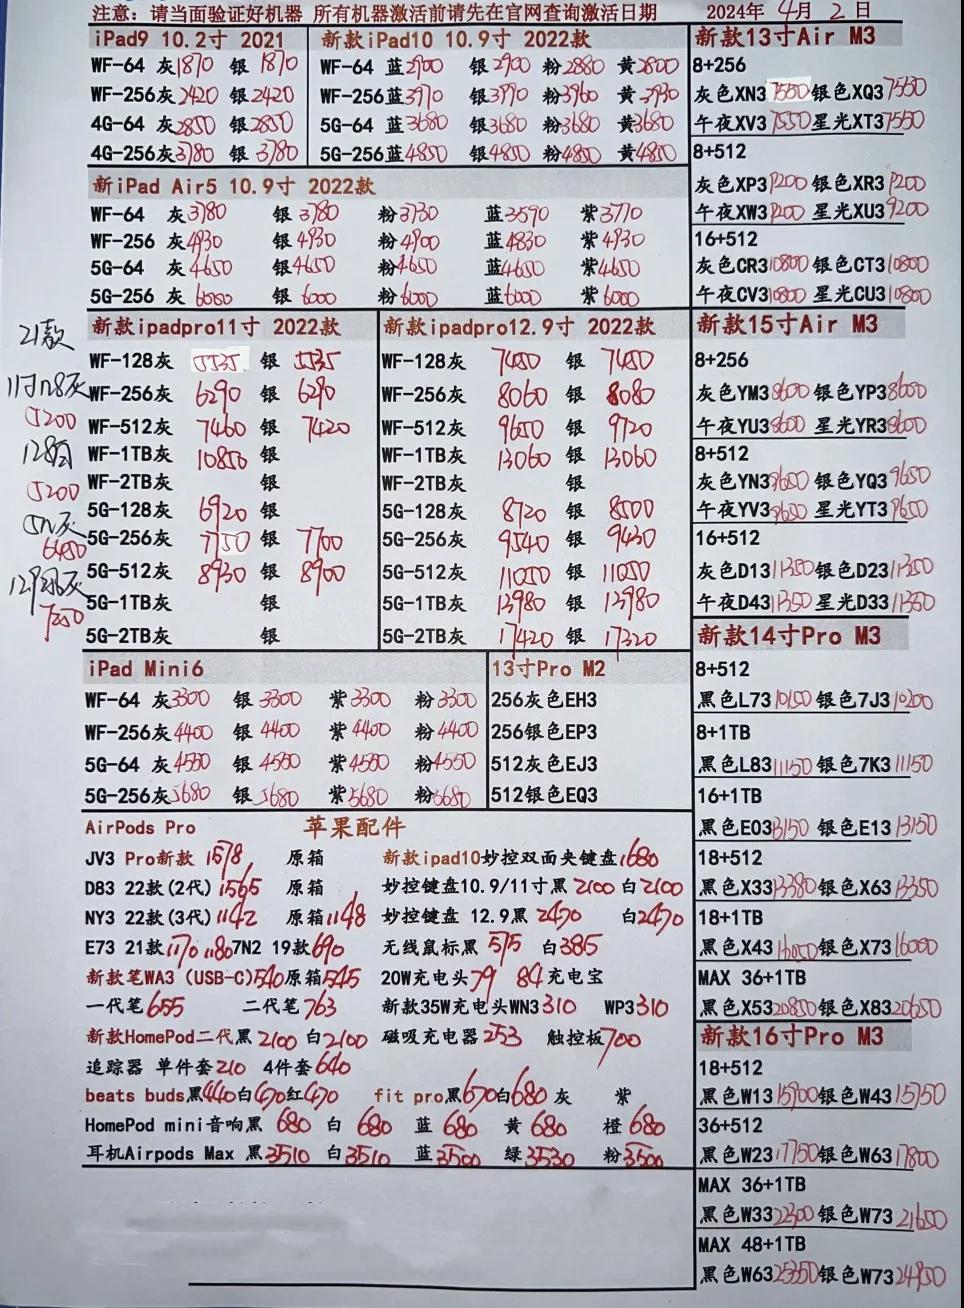 注意：请当面验证好机器 所有机器激活前请先在官网查询激活日期 2024年4月2日
iPad9 10.2寸 2021
WF-64 灰1870 银1870
WF-256灰2420 银2420
4G-64 灰2850 银2850
4G-256灰3780 银3780
新款iPad10 10.9寸 2022款
WF-64 蓝2900 银2900 粉2880 黄2800
WF-256蓝3970 银3990 粉3960 黄3930
5G-64 蓝3680 银3680 粉3680 黄3680
5G-256蓝4850 银4850 粉4850 黄4850
新iPad Air5 10.9寸 2022款
WF-64 灰3780 银3780 粉3730 蓝3590 紫3770
WF-256 灰4930 银4930 粉4900 蓝4830 紫4930
5G-64 灰4650 银4650 粉4650 蓝4650 紫4650
5G-256 灰6000 银6000 粉6000 蓝6000 紫6000
21款
11寸128灰
5200
128白
5200
512灰
6450
7250
新款ipadpro11寸 2022款
WF-128灰 5535 银 5535
WF-256灰 6290 银 6290
WF-512灰 7460 银 7420
WF-1TB灰 10850 银
WF-2TB灰 银
5G-128灰 6920 银
5G-256灰 7750 银 7700
5G-512灰 8930 银 8900
5G-1TB灰 银
5G-2TB灰 银
新款ipadpro12.9寸 2022款
WF-128灰 7450 银 7450
WF-256灰 8060 银 8080
WF-512灰 9650 银 9720
WF-1TB灰 13060 银 13060
WF-2TB灰 银
5G-128灰 8720 银 8500
5G-256灰 9540 银 9430
5G-512灰 11050 银 11050
5G-1TB灰 13980 银 13980
5G-2TB灰 17420 银 17320
iPad Mini6
WF-64 灰3300 银3300 紫3300 粉3300
WF-256灰4400 银4400 紫4400 粉4400
5G-64 灰4550 银4550 紫4550 粉4550
5G-256灰5680 银5680 紫5680 粉5680
13寸Pro M2
256灰色EH3
256银色EP3
512灰色EJ3
512银色EQ3
AirPods Pro 苹果配件
JV3 Pro新款 1578 原箱 新款ipad10妙控双面夹键盘1680
D83 22款(2代)1565 原箱 妙控键盘10.9/11寸黑2100 白2100
NY3 22款(3代)1142 原箱1148 妙控键盘 12.9黑2470 白2470
E73 21款1170 1180 7N2 19款690 无线鼠标黑575 白385
新款笔WA3 (USB-C)540原箱545 20W充电头79 84充电宝
一代笔655 二代笔763 新款35W充电头WN3 310 WP3 310
新款HomePod二代黑2100白2100 磁吸充电器253 触控板700
追踪器 单件套210 4件套640
beats buds黑440白470红470 fit pro黑670白680 灰 紫
HomePod mini音响黑 680 白 680 蓝 680 黄 680 橙 680
耳机Airpods Max 黑3510 白3510 蓝3500 绿3530 粉3500
新款13寸Air M3
8+256
灰色XN3 7550 银色XQ3 7550
午夜XV3 7550 星光XT3 7550
8+512
灰色XP3 9200 银色XR3 9200
午夜XW3 9200 星光XU3 9200
16+512
灰色CR3 10800 银色CT3 10800
午夜CV3 10800 星光CU3 10800
新款15寸Air M3
8+256
灰色YM3 8600 银色YP3 8600
午夜YU3 8600 星光YR3 8600
8+512
灰色YN3 9650 银色YQ3 9650
午夜YV3 9650 星光YT3 9650
16+512
灰色D13 11350 银色D23 11350
午夜D43 11350 星光D33 11350
新款14寸Pro M3
8+512
黑色L73 10100 银色7J3 10200
8+1TB
黑色L83 11150 银色7K3 11150
16+1TB
黑色E03 13150 银色E13 13150
18+512
黑色X33 13380 银色X63 13350
18+1TB
黑色X43 16050 银色X73 16000
MAX 36+1TB
黑色X53 20850 银色X83 20650
新款16寸Pro M3
18+512
黑色W13 15900 银色W43 15750
36+512
黑色W23 17750 银色W63 17800
MAX 36+1TB
黑色W33 22300 银色W73 21650
MAX 48+1TB
黑色W63 25350 银色W73 24950